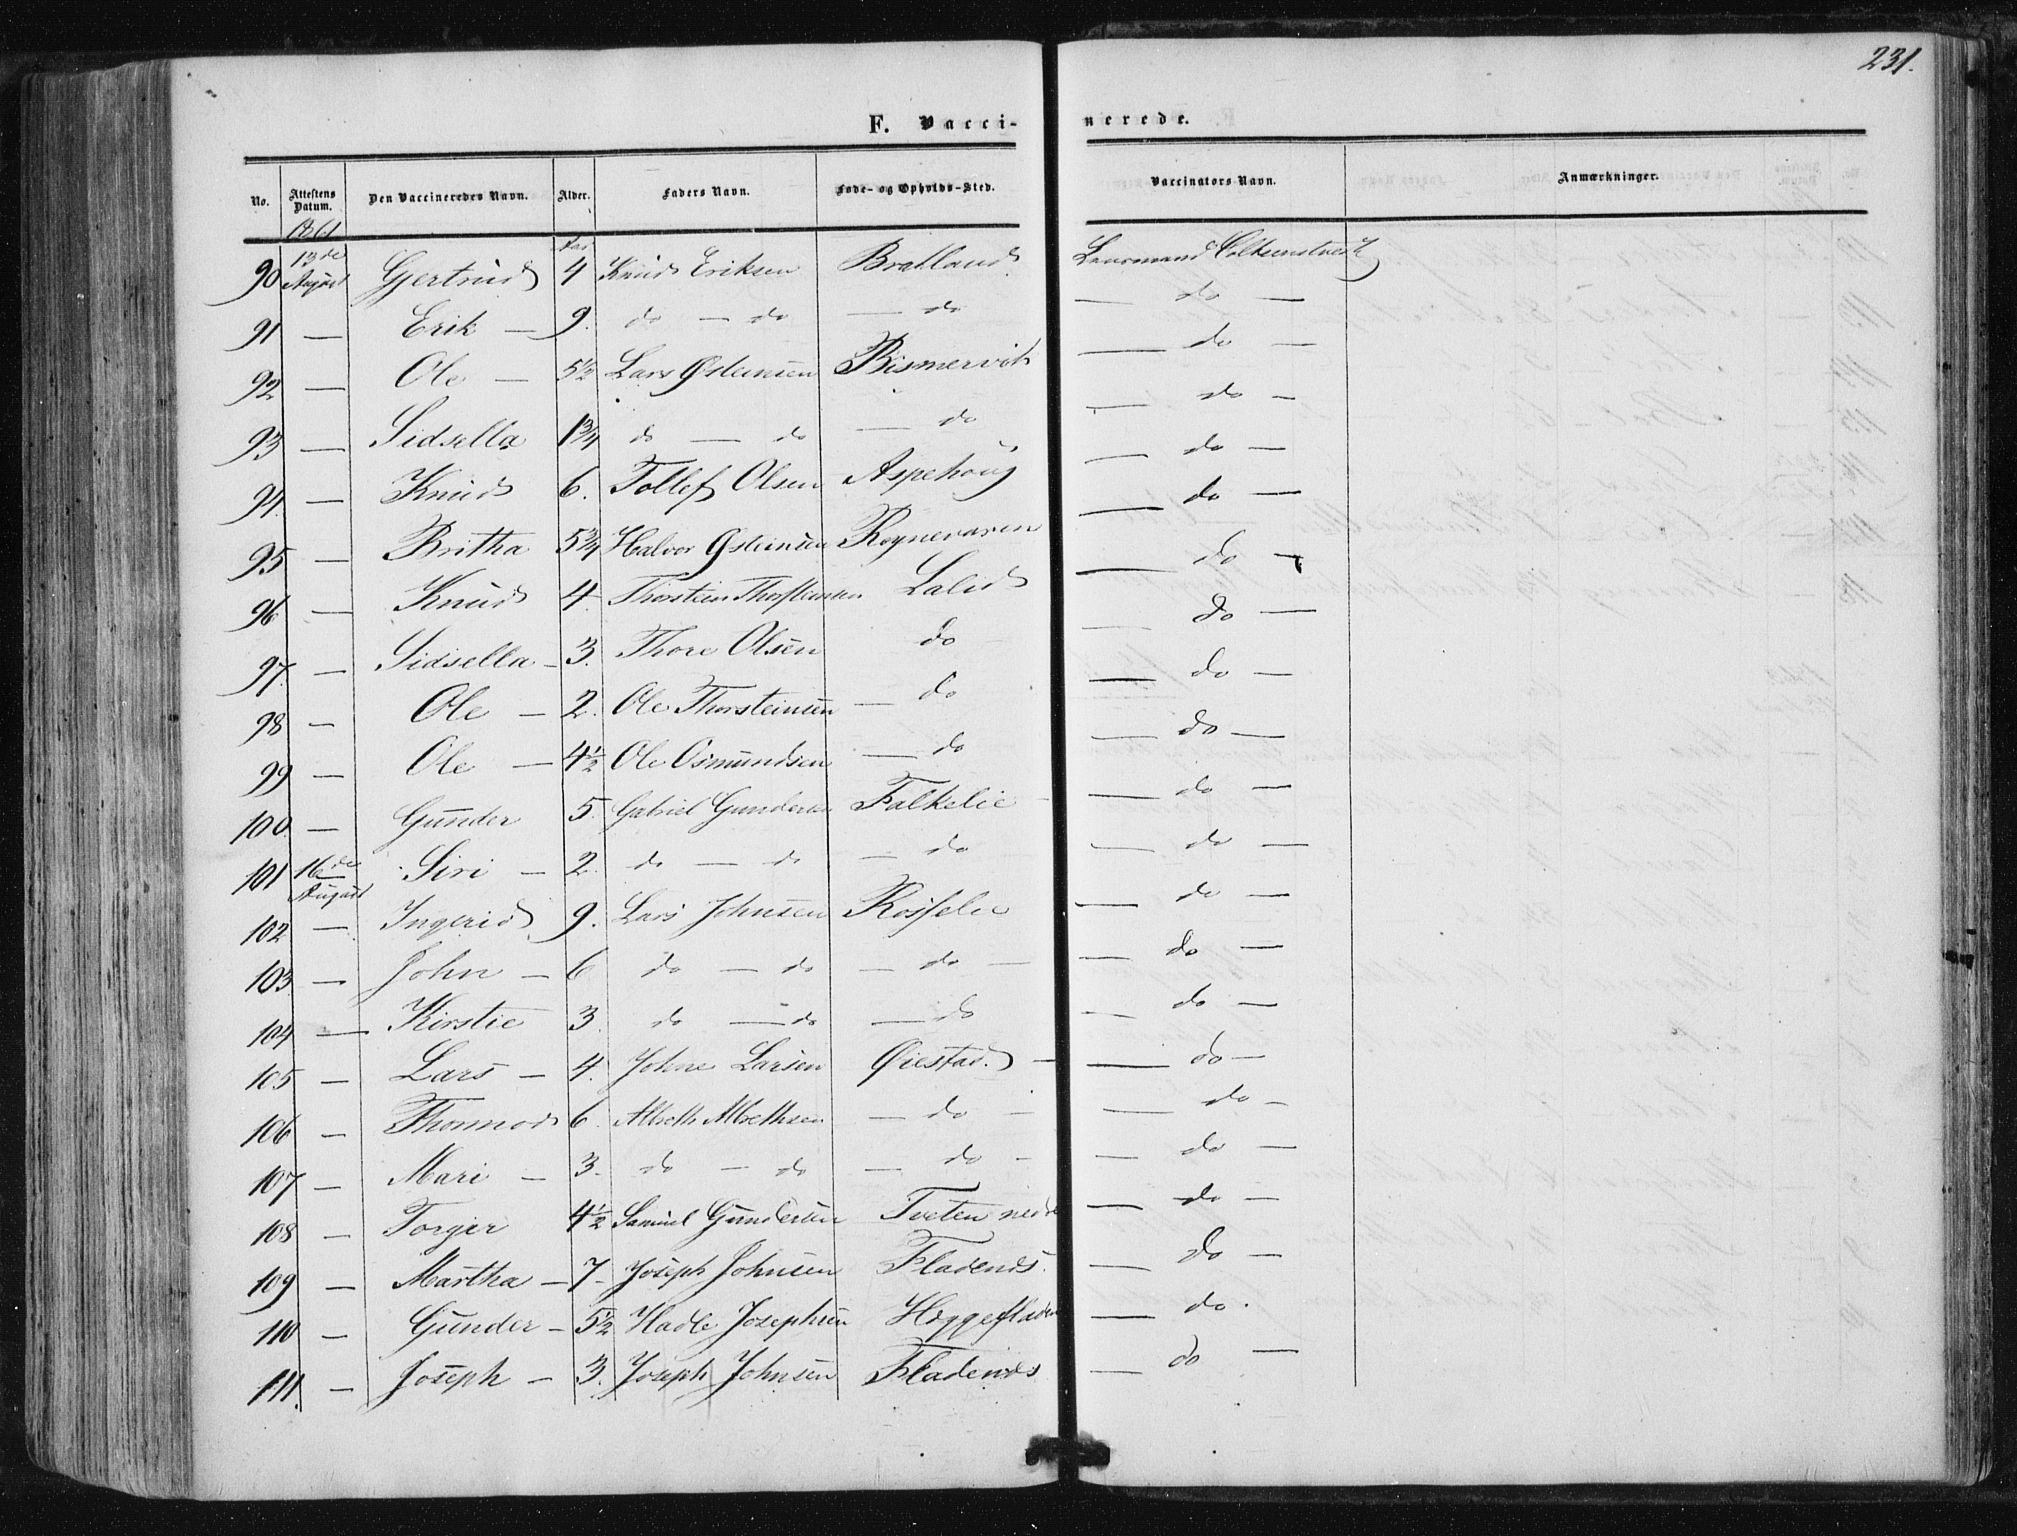 231.
F. Vaccinerede.
No. Attestens Datum. Den Vaccineredes Navn. Alder. Faders Navn. Føde- og Opholds-Sted. Vaccinators Navn. Anmærkninger.
1861 Aar
90 13de August Gjertrud 4 Knud Eriksen Bratland Lensmand
91 — Erik — 9. do — do — do — do —
92 — Ole — 5 1/2 Lars Østeinsen Bismervik — do —
93 — Sidsella 1 3/4 do — do — do — do —
94. — Knud 6. Tollef Olsen Aspehoug — do —
95 — Britha 5 3/4 Halvor Østeinsen Røynevaren — do —
96 — Knud 4. Thorstein Thorsteinsen Lalid — do —
97. — Sidsella — 3. Thore Olsen do — do —
98 — Ole — 2. Ole Thorsteinsen — do — do —
99 — Ole — 4 1/2 Ole Osmundsen — do — do —
100. — Gunder 5. Gabriel Gundersen Falkelie — do —
101 16de August Siri — 2. do — do — do — do —
102 — Ingerid 9. Lars Johnsen Rosselie — do —
103. — John — 6 do — do — do — do —
104 — Kirstie 3. do — do — do — do —
105 — Lars — 4. Johne Larsen Øiestad. — — do —
106 — Thormod 6. Albreth Albrethsen — do — — do —
107 — Mari — 3. do — do — do — — do —
108 — Torger 4 1/2 Samuel Gundersen Tveten nedre — do —
109 — Martha — 7 — Joseph Johnsen Fladenes. — do —
110 — Gunder — 5 1/2 Hadle Josephsen Heggefladen — do.
111. — Joseph — 3. Joseph Johnsen Fladenes — do —